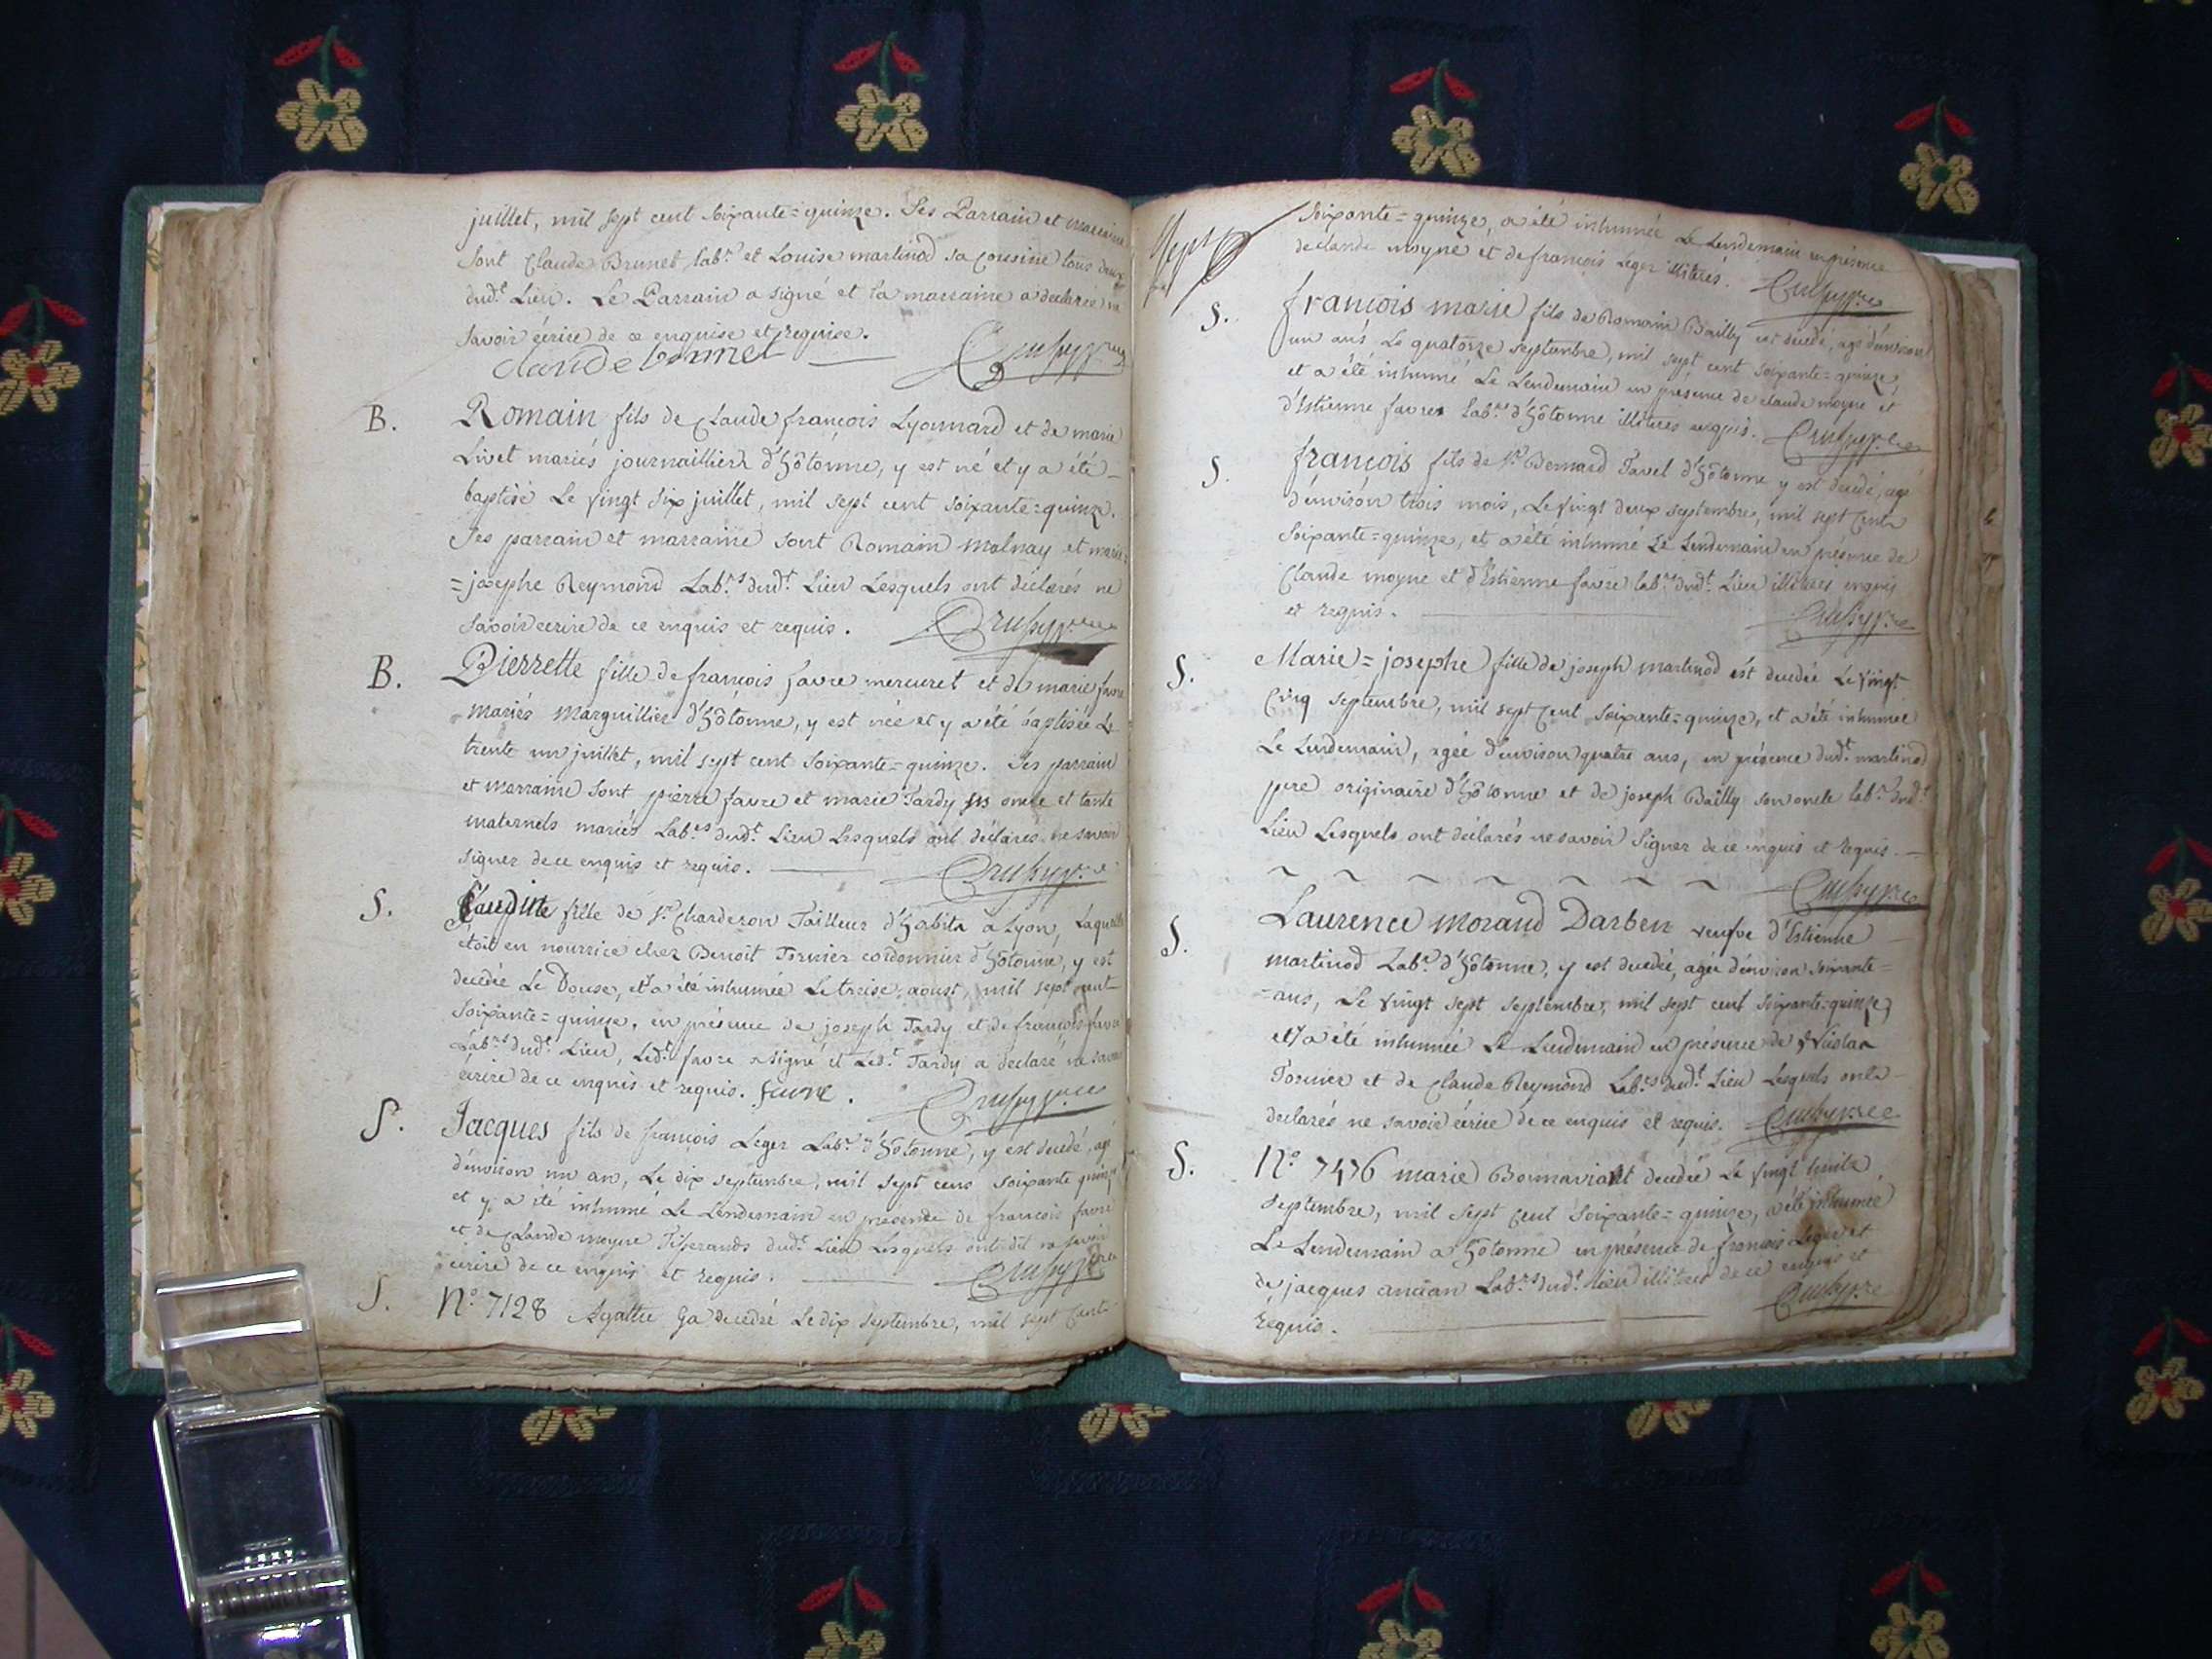 juillet, mil sept cent soixante=quinze. Ses Parrain et marraine
sont Claude Brunet labr. et Louise martinod sa cousine tous deux
dudt. Lieu. Le Parrain a signé et la marraine a declarée ne
savoir écrire de ce enquise et requise.
claude brunet
B.
Romain fils de Claude françois Lyonnard et de marie
Livet mariés journaillier d'hôtonne, y est né et y a été
baptisé Le vingt six juillet, mil sept cent soixante=quinze.
Ses parrain et marraine sont Romain Molnay et marie
=josephe Reymond Labrs. dudt. Lieu Lesquels ont déclarés ne
savoir écrire de ce enquis et requis.
B.
Pierrette fille de françois favre mercuret et de marie favre
mariés Marguillier d'hôtonne, y est née et y a été baptisée Le
trente un juillet, mil sept cent soixante=quinze. Ses parrain
et marraine sont pierre favre et marie Tardy ses oncle et tante
maternels mariés Labrs dudt. Lieu Lesquels ont déclarés ne savoir
signer de ce enquis et requis.
S.
Claudine fille de sr. Charderon Tailleur d'habits a Lyon, Laquelle
étoit en nourrice chez Benoit Tornier cordonnier d'hôtonne, y est
decedée Le Douze, et a été inhumée Le treize aoust, mil sept cent
soixante=quinze, en présence de joseph Tardy et de françois favre
Labrs dudt. Lieu, Ledt. favre a signé et Ledt. Tardy a declaré ne savoir
écrire de ce enquis et requis. favre.
S.
Jacques fils de françois Leger Labr. d'hôtonne, y est decedé, agé
d'environ un an, Le dix septembre, mil sept cens soixante quinze
et y a été inhumé Le Lendemain en présence de francois favre
et de Claude moyne Tisserands dudt. Lieu Lesquels ont dit ne savoir
écrire de ce enquis et requis.
S.
No. 7128 Agathe Ga decedée Le dix septembre, mil sept cent
soixante=quinze, a été inhumée Le Lendemain en présence
de claude moyne et de francois Leger illiterés.
S.
françois marie fils de Romain Bailly est decedé, agé d'environ
un ans Le quatorze septembre, mil sept cent soixante=quinze,
et a été inhumé Le Lendemain en presence de claude moyne et
d'Estienne favre Labrs d'hôtonne illiteres enquis.
S.
françois fils de sr. Bernard Tavel d'hôtonne y est decedé, agé
d'environ trois mois, Le vingt deux septembre, mil sept cent
soixante=quinze, et a été inhumé Le Lendemain en présence de
Claude moyne et d'Estienne favre labrs dudt. Lieu illiteres enquis
et requis.
S.
Marie=josephe fille de joseph martinod est decedée Le vingt
cinq septembre, mil sept cent soixante=quinze, et a été inhumée
Le Lendemain, agée d'environ quatre ans, en présence dudt. martinod
pere originaire d'hôtonne et de joseph Bailly son oncle labr. dudt.
Lieu Lesquels ont déclarés ne savoir signer de ce enquis et requis.
S.
Laurence Morand Darben veufve d'Estienne
martinod Labr. d'hôtonne, y est decedée, agée d'environ soixante=
=ans, Le vingt sept septembre, mil sept cent soixante=quinze,
et y a été inhumée Le Lendemain en présence de Nicolas
Tornier et de Claude Reymond Labrs dudt. Lieu Lesquels ont
declarés ne savoir écrire de ce enquis et requis.
S.
No. 7476 marie Bonnaviant decedée Le vingt huit
septembre, mil sept cent soixante=quinze, a été inhumée
Le Lendemain a hotonne en présence de françois Leger et
de jacques ancian Labrs dudt. lieu illiteres de ce enquis et
requis.